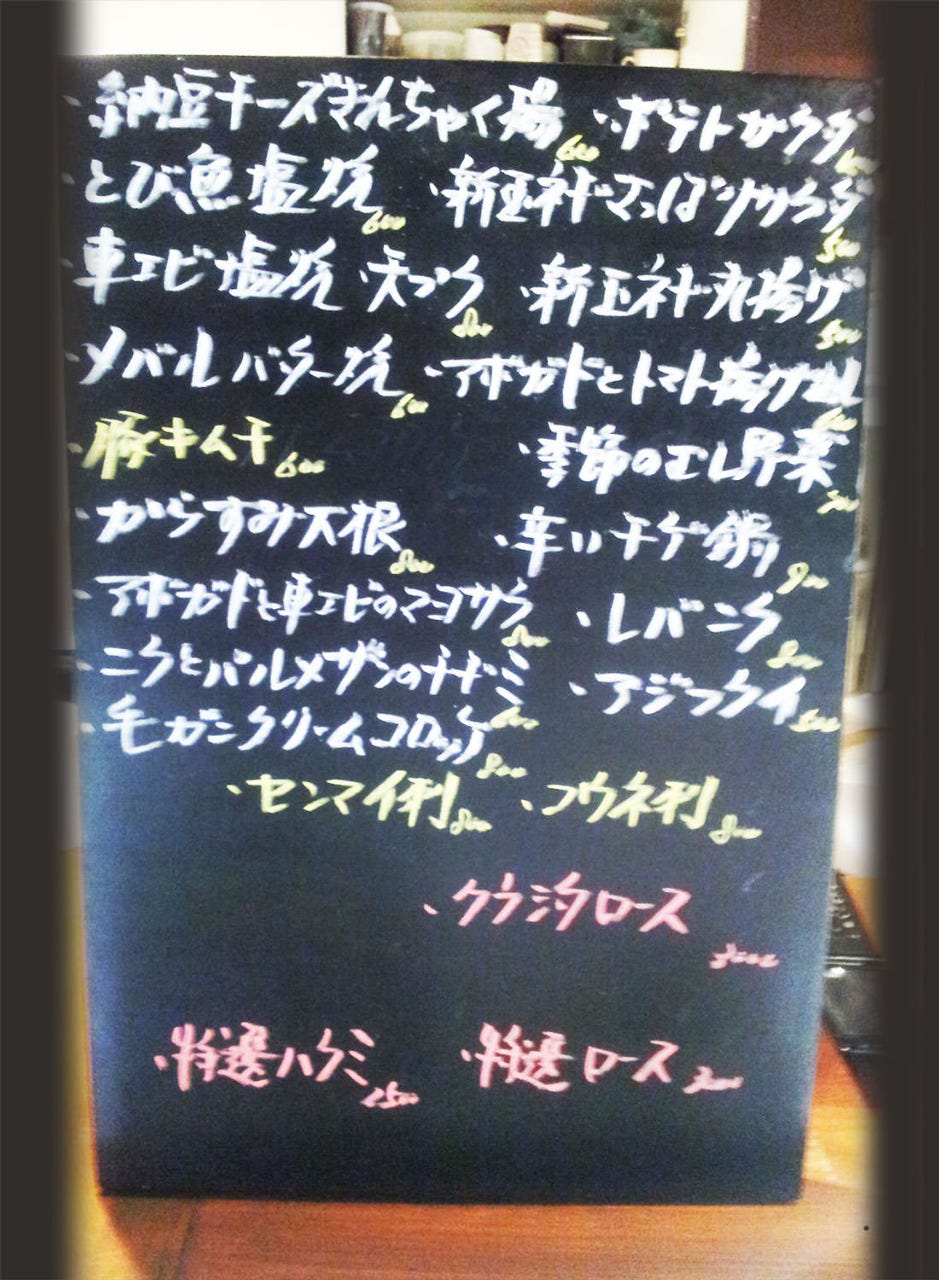 ・納豆チーズきんちゃく揚 600
・とび魚塩焼 600
・車エビ塩焼・天プラ 800
・メバルバター焼 600
・豚キムチ 600
・からすみ大根 800
・アボガドと車エビのマヨサラ 800
・ニラとパルメザンのチヂミ 600
・毛ガニクリームコロッケ 800
・ポテトサラダ
・新玉ネギマっぱりサラダ 500
・新玉ネギ丸揚げ 500
・アボガドとトマト揚げ出し 600
・季節のむし野菜 700
・辛いチゲ鍋 900
・レバニラ 800
・アジフライ 500
・センマイ刺 800
・コウネ刺 800
・クラシタロース
・特選ハラミ 2500
・特選ロース